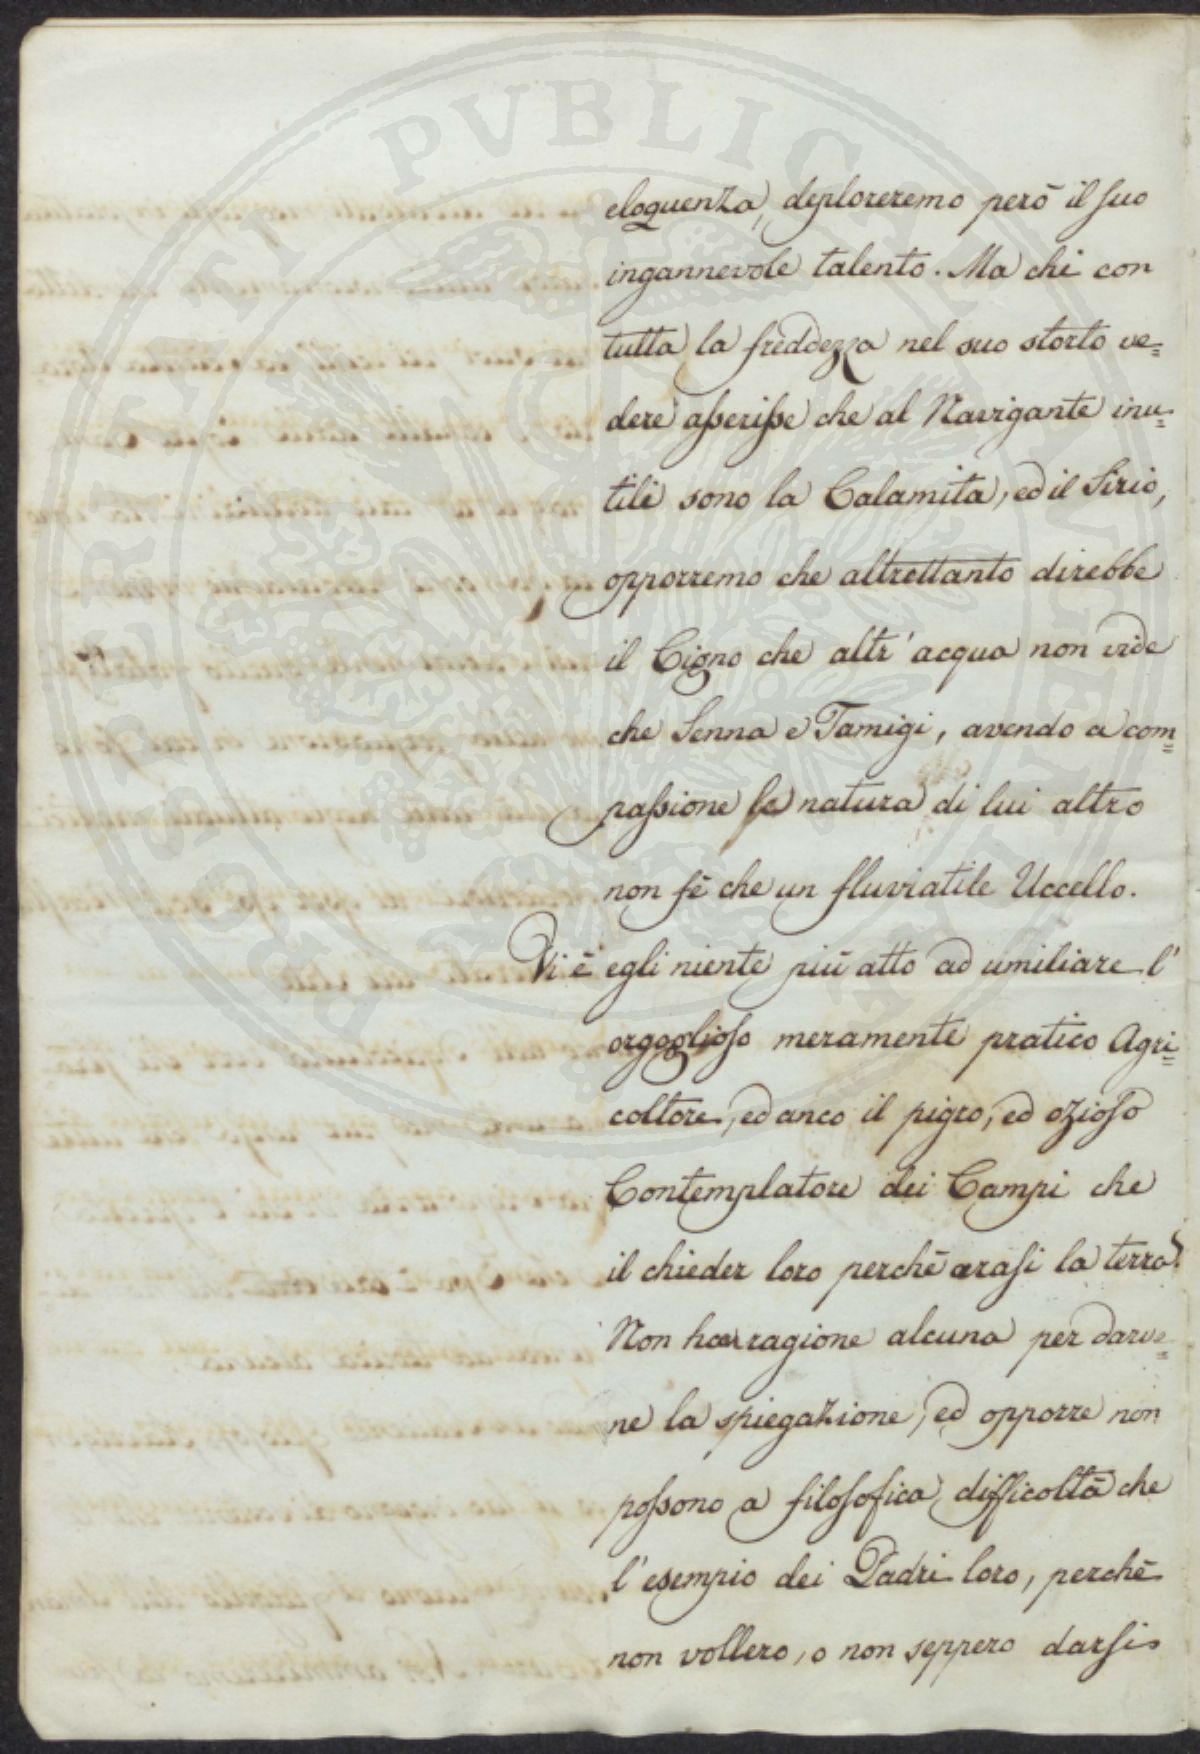 eloquenza, deploreremo però il suo
ingannevole talento. Ma chi con
tutta la freddezza nel suo storto ve=
dere asserisse che al Navigante inu=
tili sono la Calamita, ed il Sirio,
opporremo che altrettanto direbbe
il Cigno che altr'acqua non vide
che Senna e Tamigi, avendo a com=
passione la natura di lui altro
non fè che un fluviatile Uccello.
Vi è egli niente più atto ad umiliare l'
orgoglioso meramente pratico Agri=
coltore, ed anco il pigro, ed ozioso
Contemplatore dei Campi che
il chieder loro perchè arasi la terra?
Non han ragione alcuna per darve=
ne la spiegazione, ed opporre non
possono a filosofica difficoltà che
l'esempio dei Padri loro, perchè
non vollero, o non seppero darsi
PROSPERITATI PVBLICAE AVGENDAE